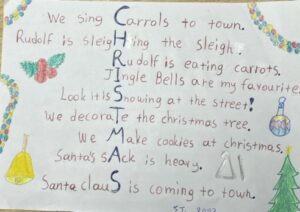 We sing Carrols to town.
Rudolf is sleigHing the sleigh.
Rudolf is eating carrots.
JIngle Bells are my favourite
Look it is Snowing at the street!
We decoraTe the christmas tree.
We Make cookies at christmas.
Santa's sAck is heavy.
Santa clauS is coming to town.